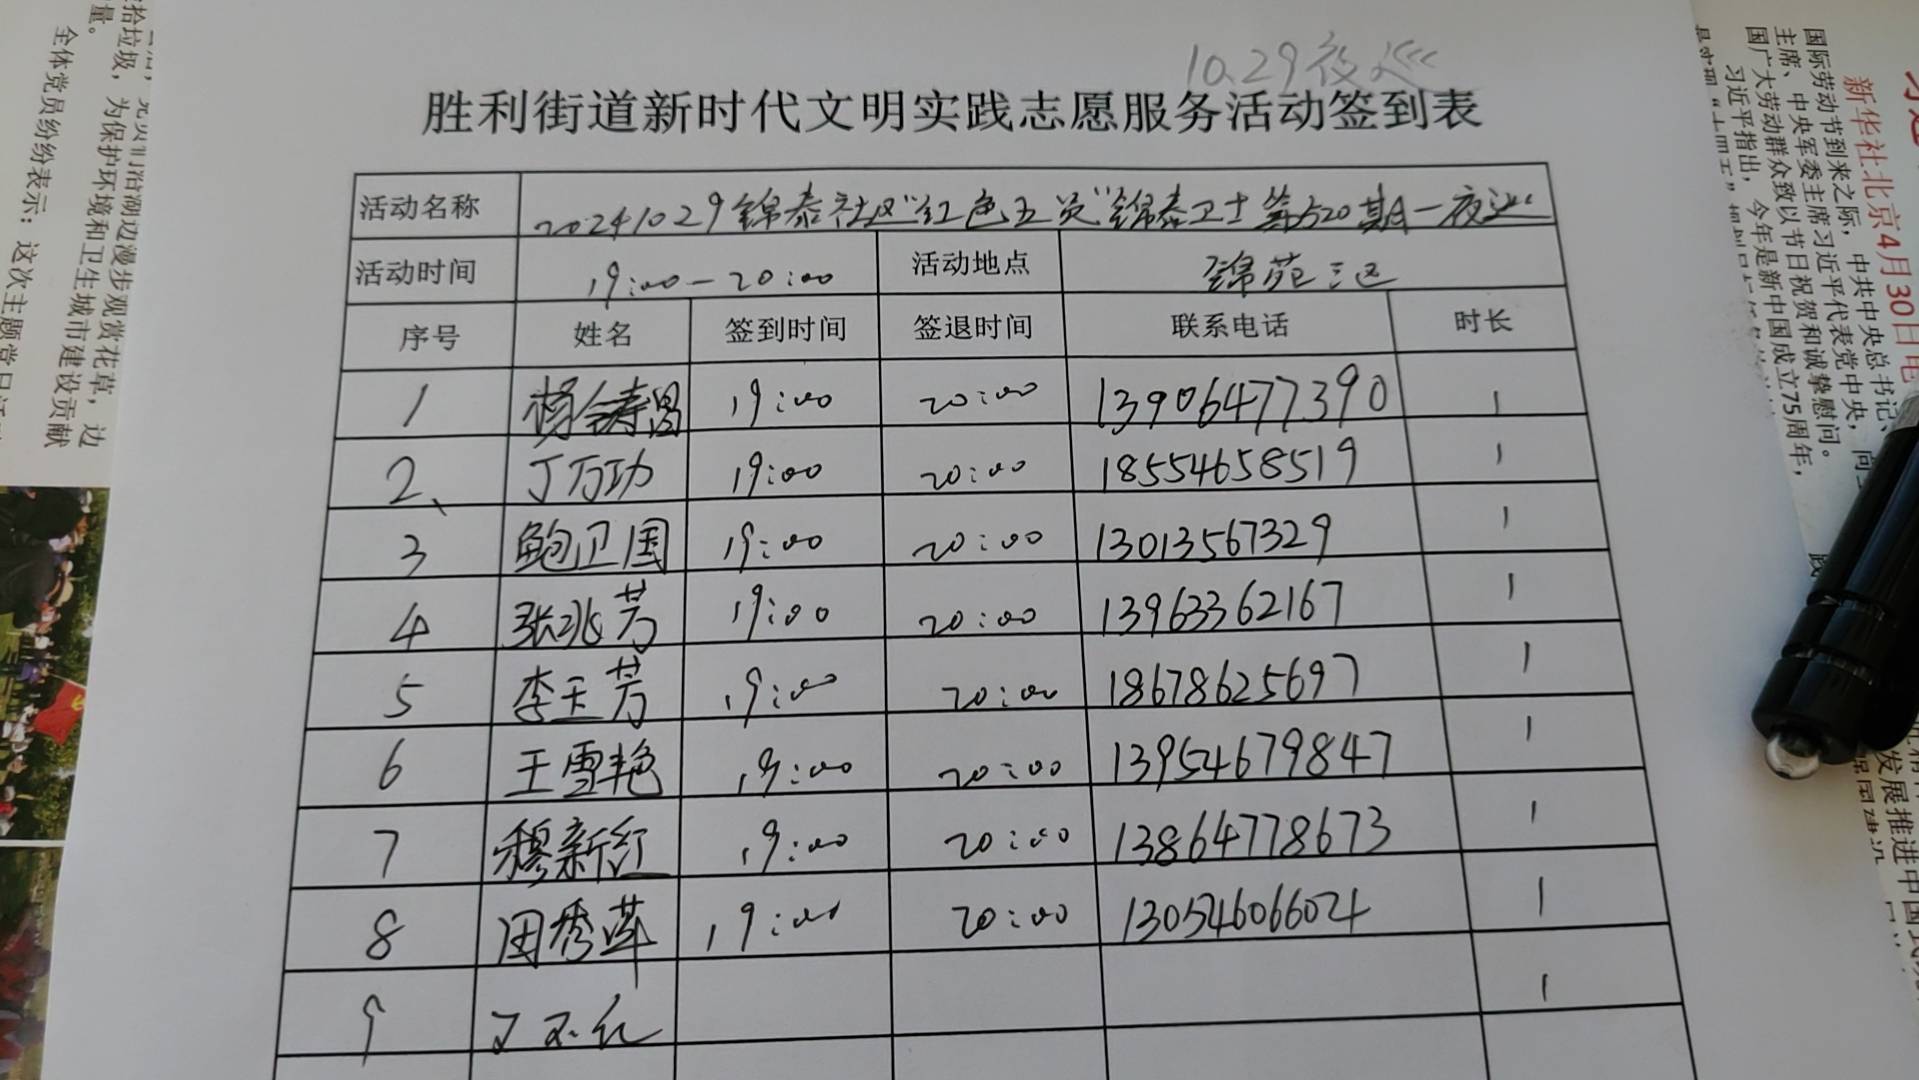 10.29夜巡
胜利街道新时代文明实践志愿服务活动签到表
活动名称 20241029锦泰社区"红色五员"锦泰卫士第520期一夜巡
活动时间 19:00-20:00 活动地点 锦苑三区
序号 姓名 签到时间 签退时间 联系电话 时长
1 杨 19:00 20:00 13906477390 1
2、 丁万功 19:00 20:00 18554658519 1
3 鲍卫国 19:00 20:00 13013567329 1
4 张兆芳 19:00 20:00 13963362167 1
5 李玉芳 19:00 20:00 18678625697 1
6 王雪艳 19:00 20:00 13954679847 1
7 穆新红 19:00 20:00 13864778673 1
8 田秀萍 19:00 20:00 13054606602 1
9 1
拾垃圾，为保护环境和卫生城市建设贡献
量。
全体党员纷纷表示：这次主题党日活
们沿湖边漫步观赏花草，边
新华社北京4月30日电
国际劳动节到来之际，中共中央总书记、
主席、中央军委主席习近平代表党中央，向
国广大劳动群众致以节日祝贺和诚挚慰问。
习近平指出，今年是新中国成立75周年，
发展推进中国式